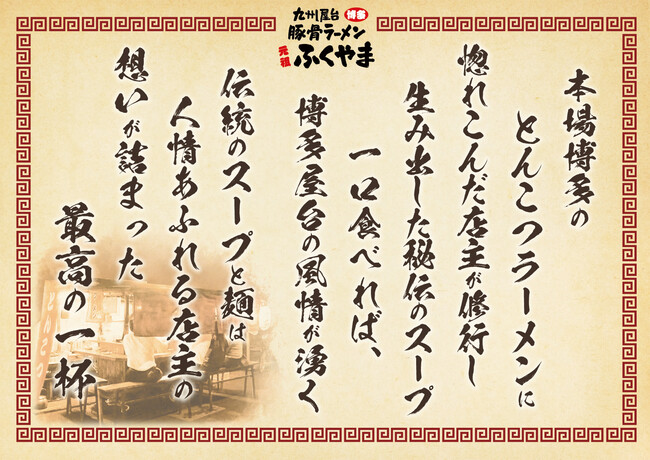 九州屋台 博多
豚骨ラーメン
元祖 ふくやま
本場博多の
とんこつラーメンに
惚れこんだ店主が修行し
生み出した秘伝のスープ
一口食べれば、
博多屋台の風情が湧く
伝統のスープと麺は
人情あふれる店主の
想いが詰まった
最高の一杯